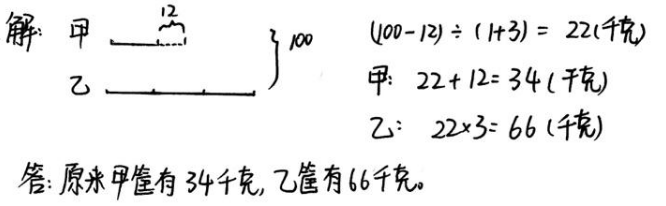 解: 甲 12
乙 100
(100-12)÷(1+3)=22(千克)
甲: 22+12=34(千克)
乙: 22×3=66(千克)
答:原来甲筐有34千克,乙筐有66千克。